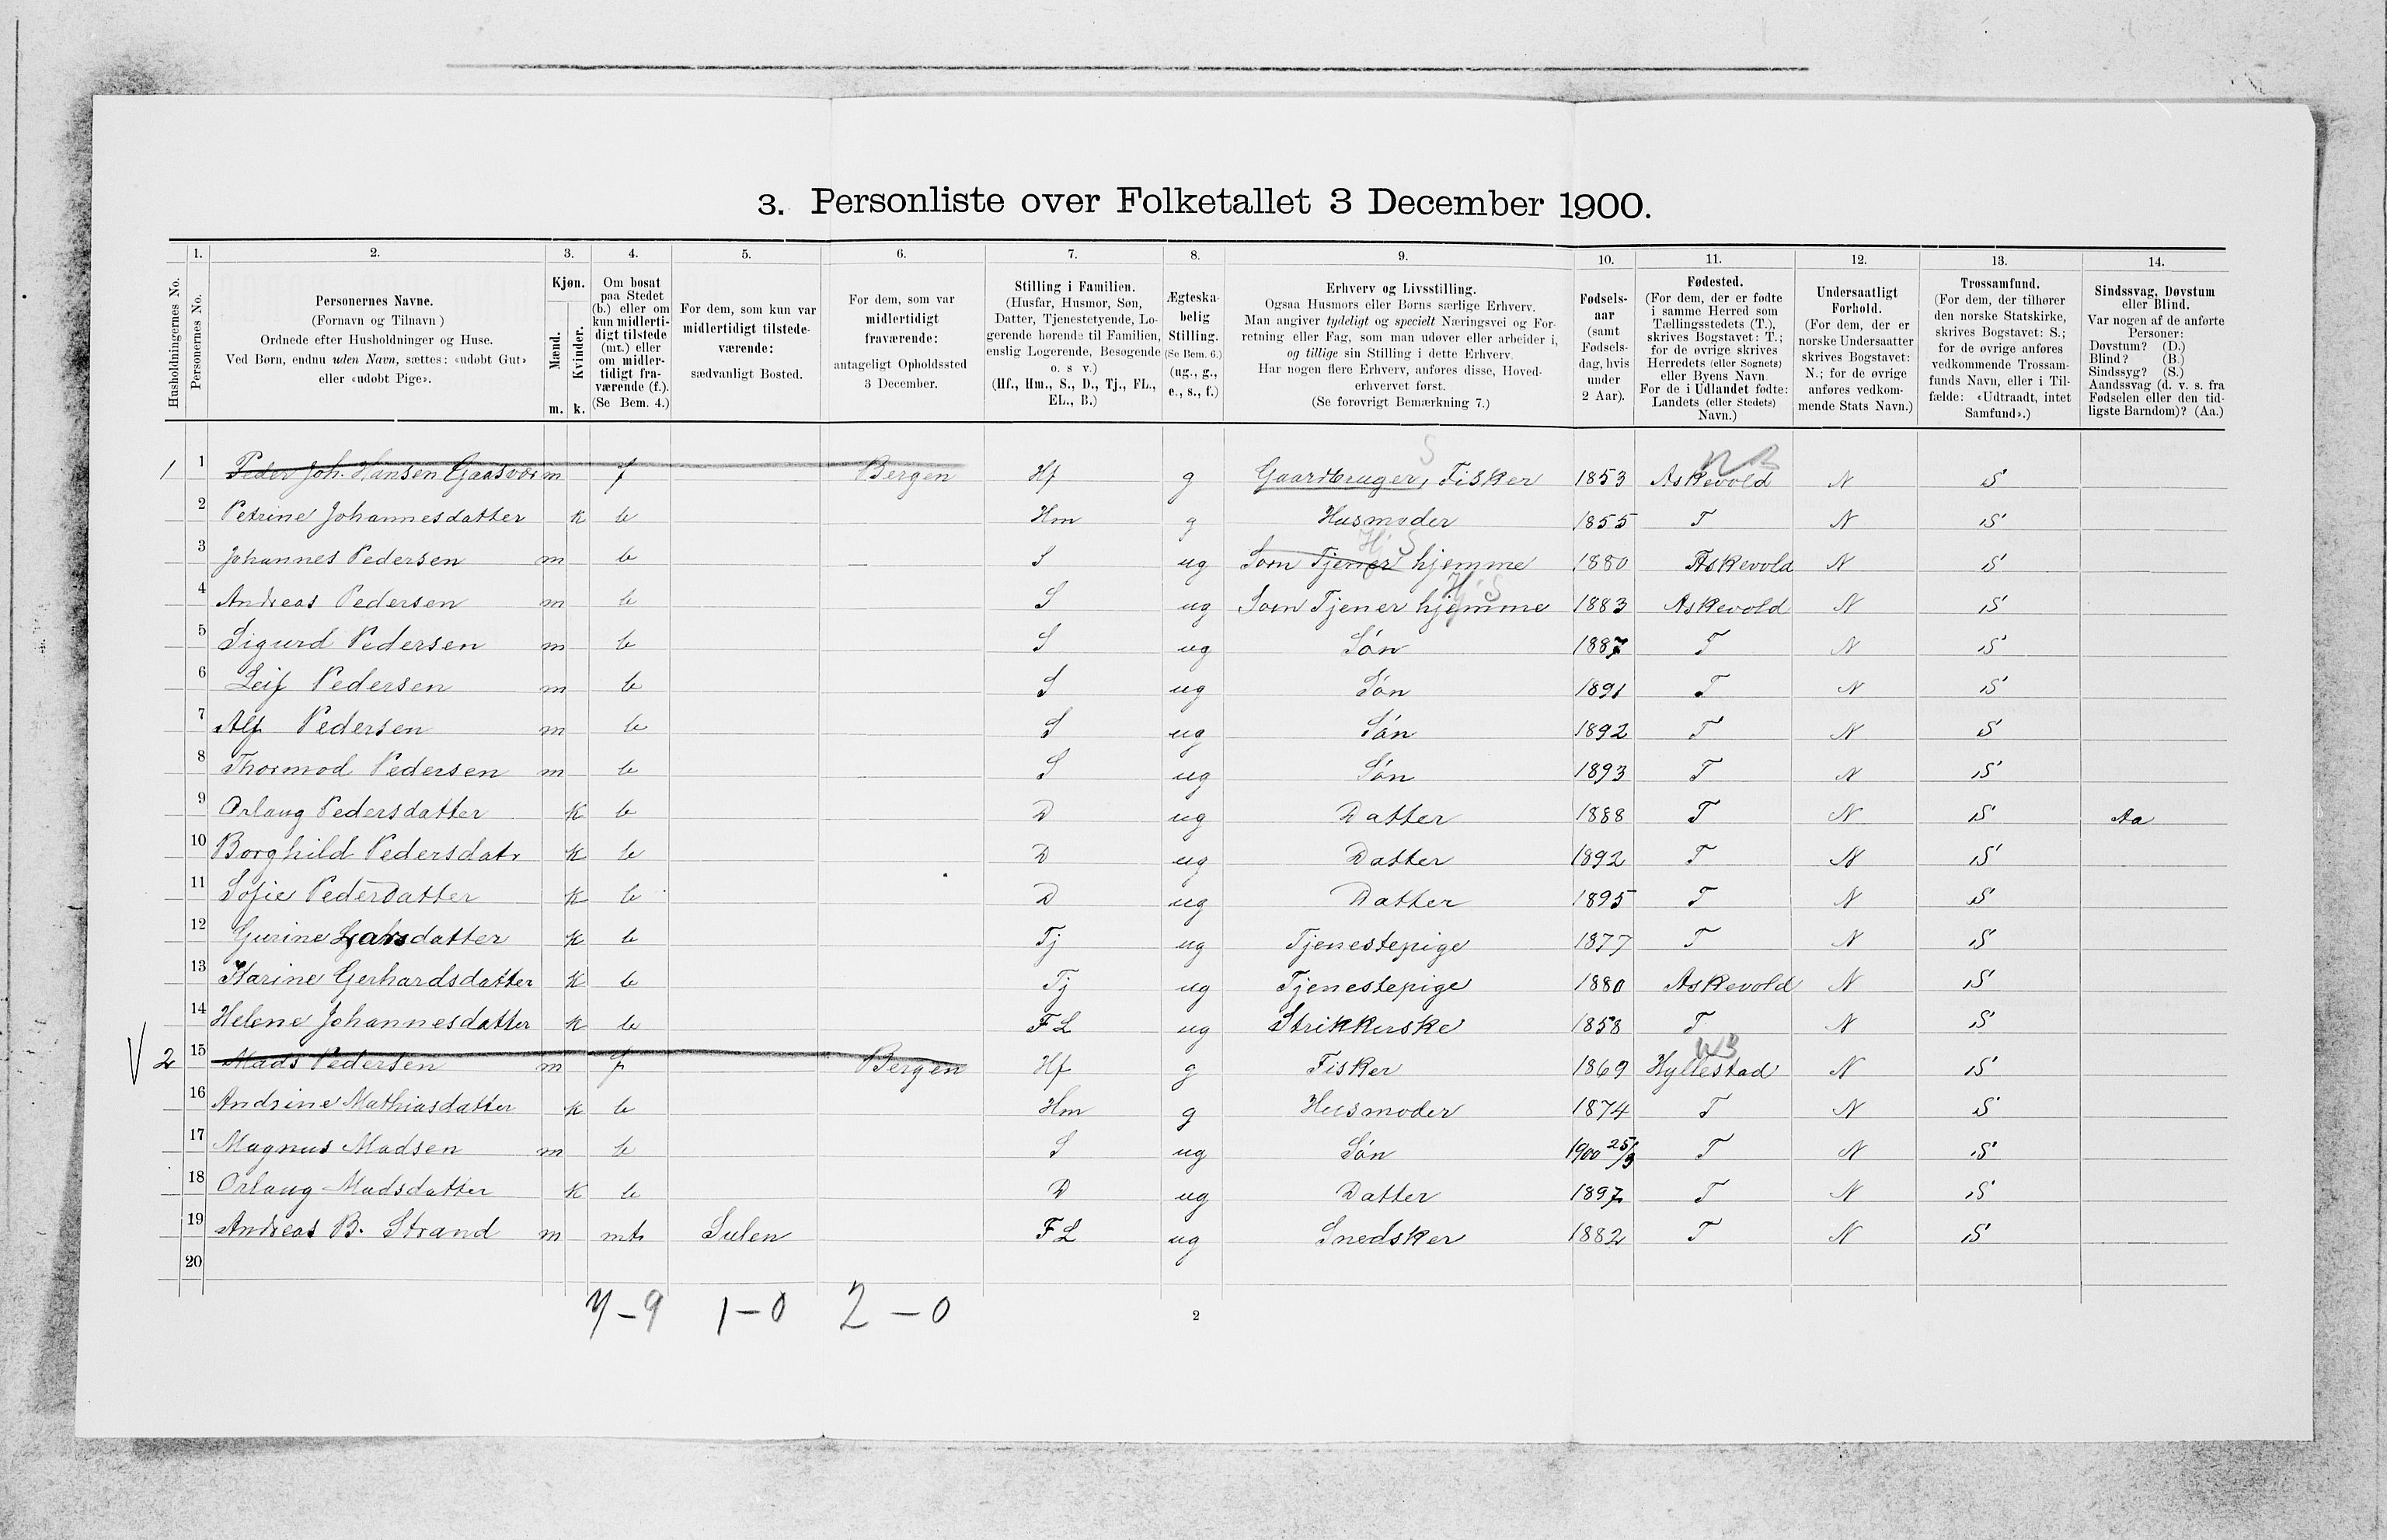 3. Personliste over Folketallet 3 December 1900.
1. 2. 3. 4. 5. 6. 7. 8. 9. 10. 11. 12. 13. 14.
Husholdningernes No.
Personernes No.
Personernes Navne.
(Fornavn og Tilnavn)
Ordnede efter Husholdninger og Huse.
Ved Børn, endnu uden Navn, sættes: «udøbt Gut»
eller «udøbt Pige».
Kjøn.
Mænd.
Kvinder.
m. k.
Om bosat
paa Stedet
(b.) eller om
kun midlerti-
digt tilstede
(mt.) eller
om midler-
tidigt fra-
værende (f.).
(Se Bem. 4.)
For dem, som kun var
midlertidigt tilstede-
værende:
sædvanligt Bosted.
For dem, som var
midlertidigt
fraværende:
antageligt Opholdssted
3 December.
Stilling i Familien.
(Husfar, Husmor, Søn,
Datter, Tjenestetyende, Lo-
gerende hørende til Familien,
enslig Logerende, Besøgende
o. s. v.)
(Hf., Hm., S., D., Tj., FL.,
EL., B.)
Ægteska-
belig
Stilling.
(Se Bem. 6.)
(ug., g.,
e., s., f.)
Erhverv og Livsstilling.
Ogsaa Husmors eller Børns særlige Erhverv.
Man angiver tydeligt og specielt Næringsvei og For-
retning eller Fag, som man udøver eller arbeider i,
og tillige sin Stilling i dette Erhverv.
Har nogen flere Erhverv, anføres disse, Hoved-
erhvervet først.
(Se forøvrigt Bemærkning 7.)
Fødsels-
aar
(samt
Fødsels-
dag, hvis
under
2 Aar).
Fødested.
(For dem, der er fødte
i samme Herred som
Tællingsstedets (T.),
skrives Bogstavet: T.;
for de øvrige skrives
Herredets (eller Sognets)
eller Byens Navn.
For de i Udlandet fødte:
Landets (eller Stedets)
Navn.)
Undersaatligt
Forhold.
(For dem, der er
norske Undersaatter
skrives Bogstavet:
N.; for de øvrige
anføres vedkom-
mende Stats Navn.)
Trossamfund.
(For dem, der tilhører
den norske Statskirke,
skrives Bogstavet: S.;
for de øvrige anføres
vedkommende Trossam-
funds Navn, eller i Til-
fælde: «Udtraadt, intet
Samfund».)
Sindssvag, Døvstum
eller Blind.
Var nogen af de anførte
Personer:
Døvstum? (D.)
Blind? (B.)
Sindssyg? (S.)
Aandssvag (d. v. s. fra
Fødselen eller den tid-
ligste Barndom)? (Aa.)
1 1 Peder Joh. Hansen Gaasvær m f Bergen Hf g Gaardbruger, Fisker 1853 Askevold N S
2 Petrine Johannesdatter k b Hm g Husmoder 1855 T N S
3 Johannes Pedersen m b S ug Som Tjener hjemme 1880 Askevold N S
4 Andreas Pedersen m b S ug Som Tjener hjemme 1883 Askevold N S
5 Sigurd Pedersen m b S ug Søn 1887 T N S
6 Leif Pedersen m b S ug Søn 1891 T N S
7 Alf Pedersen m b S ug Søn 1892 T N S
8 Thormod Pedersen m b S ug Søn 1893 T N S
9 Orlaug Pedersdatter k b D ug Datter 1888 T N S Aa
10 Borghild Pedersdatr k b D ug Datter 1892 T N S
11 Sofie Pedersdatter k b D ug Datter 1895 T N S
12 Gurine Larsdatter k b Tj ug Tjenestepige 1877 T N S
13 Karine Gerhardsdatter k b Tj ug Tjenestepige 1880 Askevold N S
14 Helene Johannesdatter k b FL ug Strikkerske 1858 T N S
2 15 Mads Pedersen m f Bergen Hf g Fisker 1869 Hyllestad N S
16 Andrine Mathiasdatter k b Hm g Husmoder 1874 T N S
17 Magnus Madsen m b S ug Søn 1900 25/9 T N S
18 Orlaug Madsdatter k b D ug Datter 1897 T N S
19 Andreas B. Strand m mt Sulen FL ug Snedsker 1882 T N S
20
7-9 1-0 2-0
2